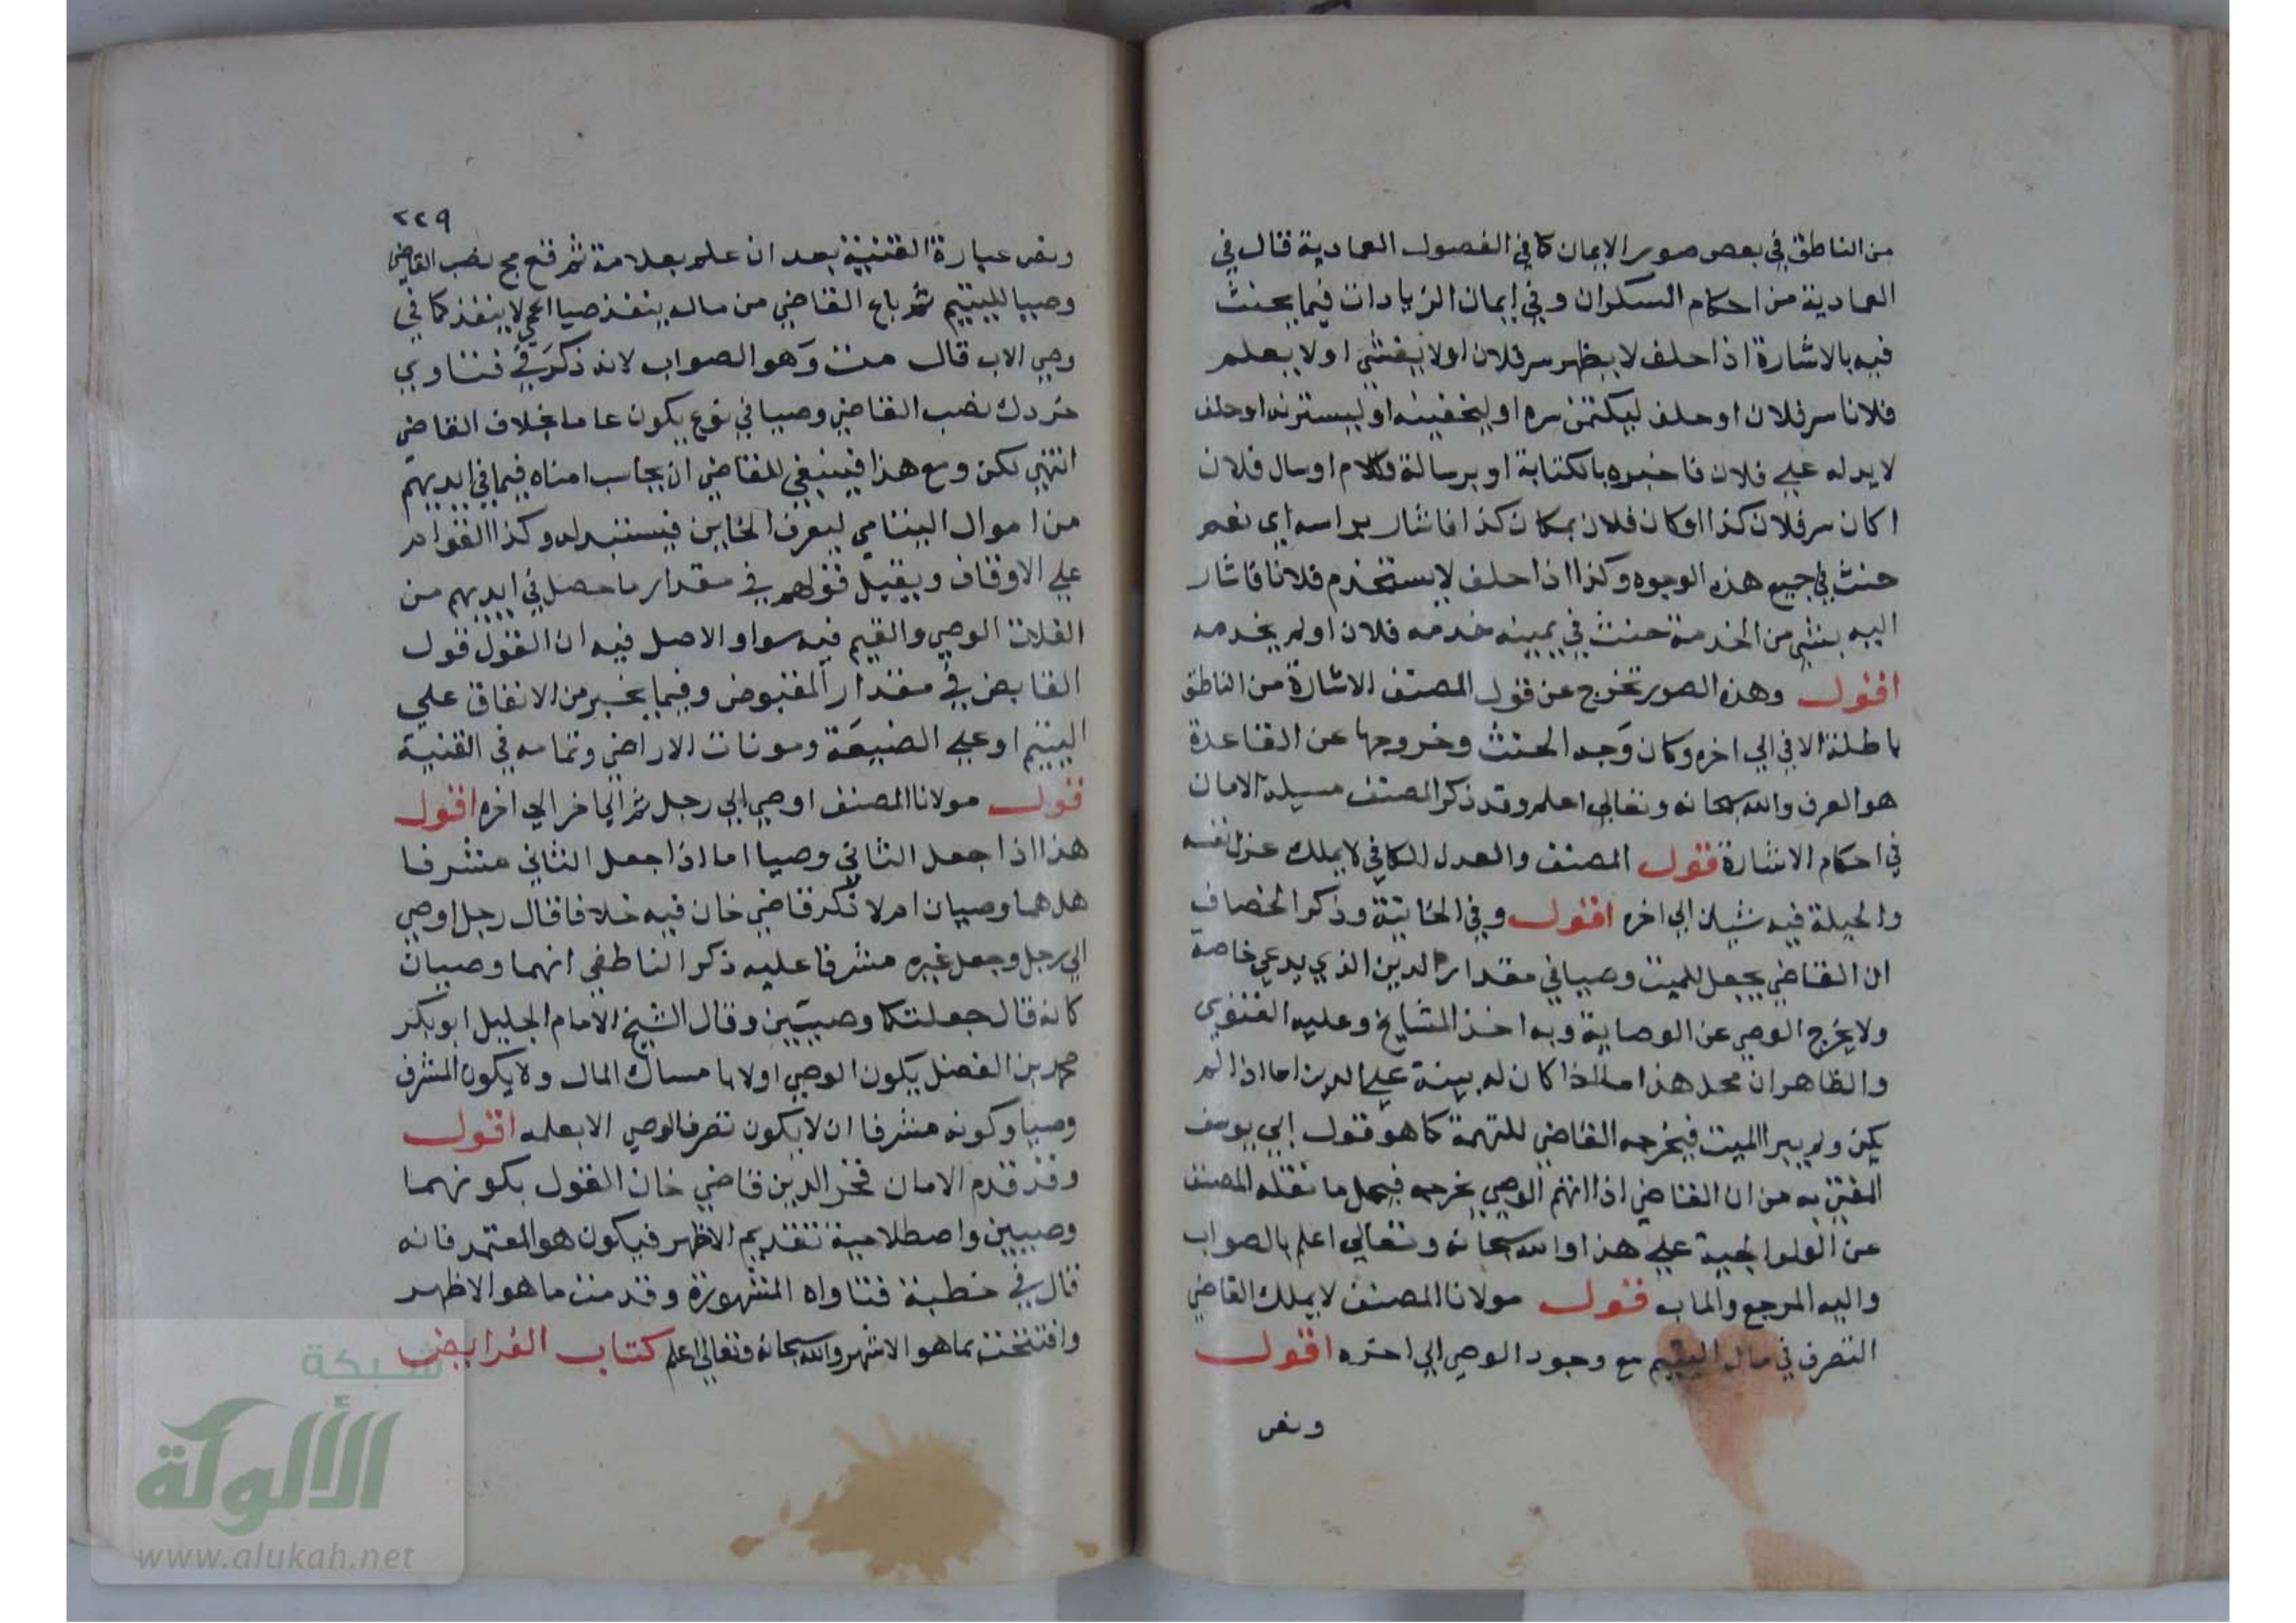 من الناطق في بعض صور الايمان كما في الفصول العمادية قال في
العمادية من احكام السكران وفي ايمان الزيادات فيما يحنث
فيه بالاشارة اذا حلف لا يظهر سر فلان او لا يفشي او لا يعلم
فلانا سر فلان او حلف ليكتمن سره او ليخفينه او ليسترنه او حلف
لا يدله علي فلان فاخبره بالكتابة او برسالة وكلام او سال فلان
اكان سر فلان كذا او كان فلان بمكان كذا فاشار براسه اي نعم
حنث في جميع هذه الوجوه وكذا اذا حلف لا يستخدم فلانا فاشار
اليه بشي من الخدمة حنث في يمينه خدمه فلان او لم يخدمه
اقول وهذه الصور تخرج عن قول المصنف الاشارة من الناطق
باطلة الا في الي اخره وكان وجه الحنث وخروجها عن القاعدة
هو العرف والله سبحانه وتعالي اعلم وقد ذكر المصنف مسيلة الامان
في احكام الاشارة قول المصنف والعدل الكافي لا يملك عزل نفسه
والحيلة فيه شيان الي اخره اقول وفي الخانية وذكر الخصاف
ان القاضي يجعل للميت وصيا في مقدار الدين الذي يدعي خاصة
ولا يخرج الوصي عن الوصاية وبه اخذ المشايخ وعليه الفتوي
والظاهر ان محل هذا ما اذا كان له بينة علي الدين اما اذا لم
يكن ولم يبرا الميت فيخرجه القاضي للتهمة كما هو قول ابي يوسف
المفتي به من ان القاضي اذا اتهم الوصي يخرجه فيحمل ما نقله المصنف
عن الولوالجية علي هذا والله سبحانه وتعالي اعلم بالصواب
واليه المرجع والماب قول مولانا المصنف لا يملك القاضي
التصرف في مال اليتيم مع وجود الوصي الي اخره اقول
ونص
٢٢٩
ونص عبارة القنية بعد ان علم بعلامة ثم رقع مح نصب القاضي
وصيا لليتيم ثم باع القاضي من ماله ينفذ لا ينفذ كما في
وصي الاب قال وهو الصواب لانه ذكر في فتاوي
نصب القاضي وصيا في نوع يكون عاما بخلاف القاضي
انتهي لكن ومع هذا فينبغي للقاضي ان يحاسب امناه فيما في ايديهم
من اموال اليتامي ليعرف الخاين فيستبدله وكذا القوام
علي الاوقاف ويقبل قولهم في مقدار ما حصل في ايديهم من
الغلات الوصي والقيم فيه سوا والاصل فيه ان القول قول
القابض في مقدار المقبوض وفيما يخبر من الانفاق علي
اليتيم او علي الضيعة ومونات الاراضي وتمامه في القنية
قول مولانا المصنف اوصي الي رجل ثم الي اخر الي اخره اقول
هذا اذا جعل الثاني وصيا اما اذا جعل الثاني مشرفا
هل هما وصيان ام لا ذكر قاضي خان فيه خلافا قال رجل اوصي
الي رجل وجعل غيره مشرفا عليه ذكر الناطفي انهما وصيان
كانه قال جعلتكما وصيين وقال الشيخ الامام الجليل ابو بكر
محمد بن الفضل يكون الوصي اولا بامساك المال ولا يكون المشرف
وصيا وكونه مشرفا ان لا يكون تصرف الوصي الا بعلمه اقول
وقد قدم الامان فخر الدين قاضي خان القول بكونهما
وصيين واصطلاحية تقديم الاظهر فيكون هو المعتمد فانه
قال في خطبة فتاواه المشهورة وقدمت ما هو الاظهر
وافتتحت بما هو الاشهر والله سبحانه وتعالي اعلم كتاب الفرايض
شبكة
الألوكة
www.alukah.net